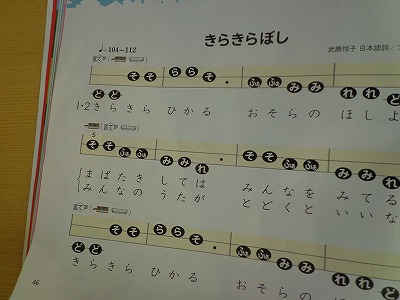 きらきらぼし
♩=104~112
武鹿悦子 日本語詞
そ そ ら ら そ ・ ふぁ ふぁ み み れ れ ど
ど ど
1・2 きらきら ひかる おそらの ほしよ
5
そ そ ふぁ ふぁ み み れ ・ そ そ ふぁ ふぁ み み れ
まばたき しては みんなを みてる
みんなの うたが とどくと いいな
そ そ ら ら そ ・ ふぁ ふぁ み み れ れ ど
ど ど
きらきら ひかる おそらの ほ
46